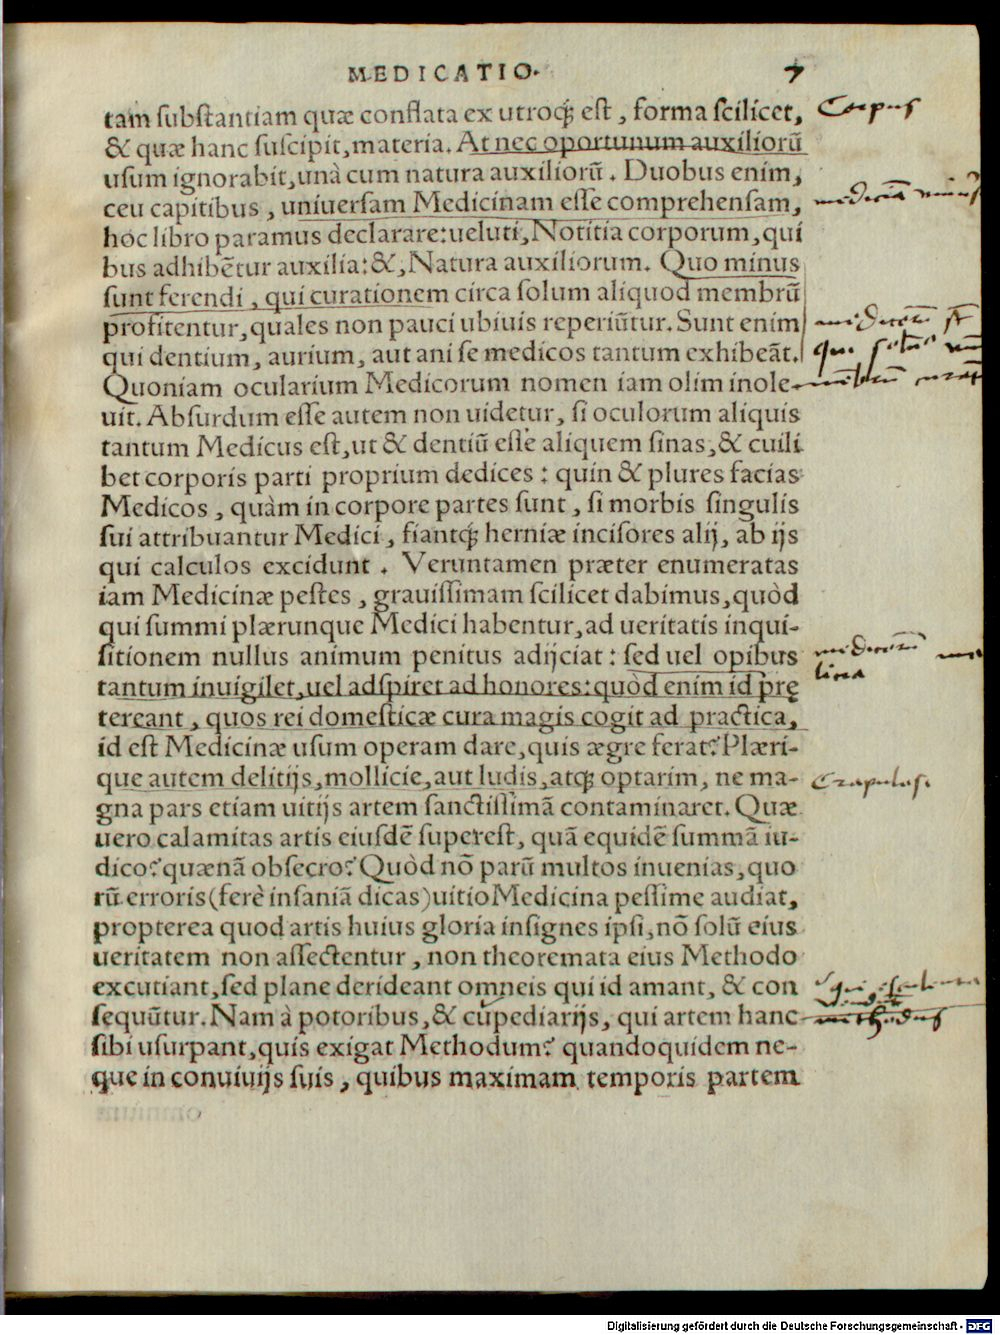 MEDICATIO. 7
tam ſubſtantiam quæ conflata ex utroq; eſt, forma ſcilicet,
Corpus
& quæ hanc ſuſcipit, materia. At nec oportunum auxiliorũ
uſum ignorabit, unà cum natura auxiliorũ. Duobus enim,
ceu capitibus, uniuerſam Medicinam eſſe comprehenſam,
hoc libro paramus declarare: ueluti, Notitia corporum, qui
bus adhibẽtur auxilia: &, Natura auxiliorum. Quo minus
ſunt ferendi, qui curationem circa ſolum aliquod membrũ
profitentur, quales non pauci ubiuis reperiũtur. Sunt enim
qui dentium, aurium, aut ani ſe medicos tantum exhibeãt.
Quoniam oculariũm Medicorum nomen iam olim inole-
uit. Abſurdum eſſe autem non uidetur, ſi oculorum aliquis
tantum Medicus eſt, ut & dentiũ eſſe aliquem ſinas, & cuili
bet corporis parti proprium dedices: quin & plures facias
Medicos, quàm in corpore partes ſunt, ſi morbis ſingulis
ſui attribuantur Medici, fiantq; herniæ inciſores alij, ab ijs
qui calculos excidunt. Veruntamen præter enumeratas
iam Medicinæ peſtes, grauiſſimam ſcilicet dabimus, quòd
qui ſummi plærunque Medici habentur, ad ueritatis inqui-
ſitionem nullus animum penitus adijciat: ſed uel opibus
tantum inuigilet, uel adſpiret ad honores: quòd enim id prę
tereant, quos rei domeſticæ cura magis cogit ad practica,
id eſt Medicinæ uſum operam dare, quis ægre ferat? Plæri-
que autem delitijs, mollicie, aut ludis, atq; optarim, ne ma-
gna pars etiam uitijs artem ſanctiſſimã contaminaret. Quæ
uero calamitas artis eiuſdẽ ſupereſt, quã equidẽ ſummã iu-
dico? quænã obſecro? Quòd nõ parũ multos inuenias, quo
rũ erroris (ferè inſaniã dicas) uitio Medicina peſſime audiat,
propterea quod artis huius gloria inſignes ipſi, nõ ſolũ eius
ueritatem non aſſectentur, non theoremata eius Methodo
excutiant, ſed plane derideant omneis qui id amant, & con
ſequũtur. Nam à potoribus, & cupediarijs, qui artem hanc
methodus
ſibi uſurpant, quis exigat Methodum? quandoquidem ne-
que in conuiuijs ſuis, quibus maximam temporis partem
Digitalisierung gefördert durch die Deutsche Forschungsgemeinschaft - DFG